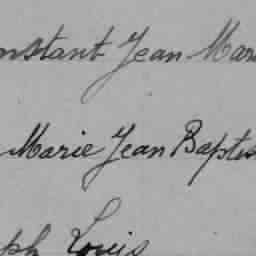 nstant Jean Mari
Marie Jean Baptis
ph Louis